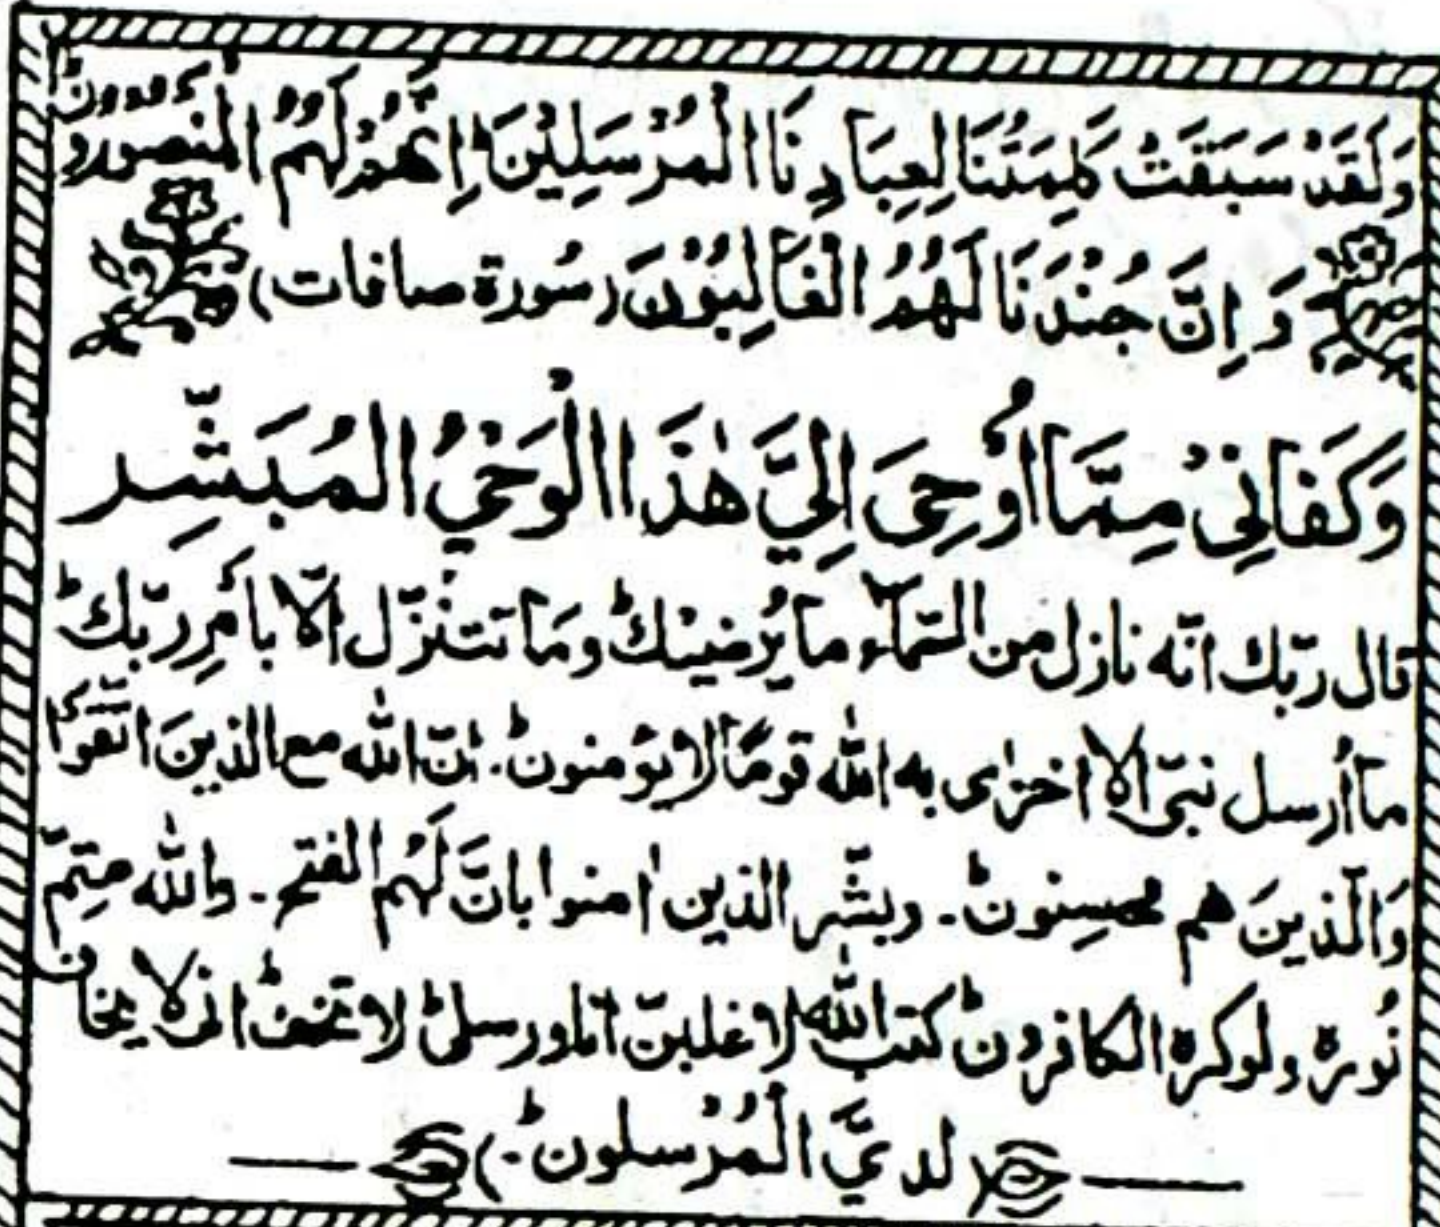 وَلَقَدْ سَبَقَتْ كَلِمَتُنَا لِعِبَادِنَا الْمُرْسَلِيْنَ ؕ اِنَّهُمْ لَهُمُ الْمَنْصُورُونَؕ
وَ اِنَّ جُنْدَنَا لَهُمُ الْغَالِبُوْنَ (سُورة صافات)
وَكَفَانِيْ مِمَّا اُوْحِيَ اِلَيَّ هٰذَا الْوَحْيُ المُبَشِّر
قال ربّك انّه نازل من السّمآء ما يُرضيْكؕ وَمَا نتنزّل الّا بأمْرِ ربّكؕ
ما أرسل نبیّ الا اخزٰی به الله قومًا لا يؤمنونؕ. انّ الله مع الذينَ اتّقَوْا
وَالّذينَ هم محسِنونؕ۔ وبشّر الذين اٰمنوا بانَّ لَهُم الفتح۔ والله متِمّ
نُوره ولو كره الكافرونؕ كتب الله لاغلبنّ انا ورسلیؕ لا تخفؕ انی لا يخاف
(لديَّ الْمُرْسلونؕ.)